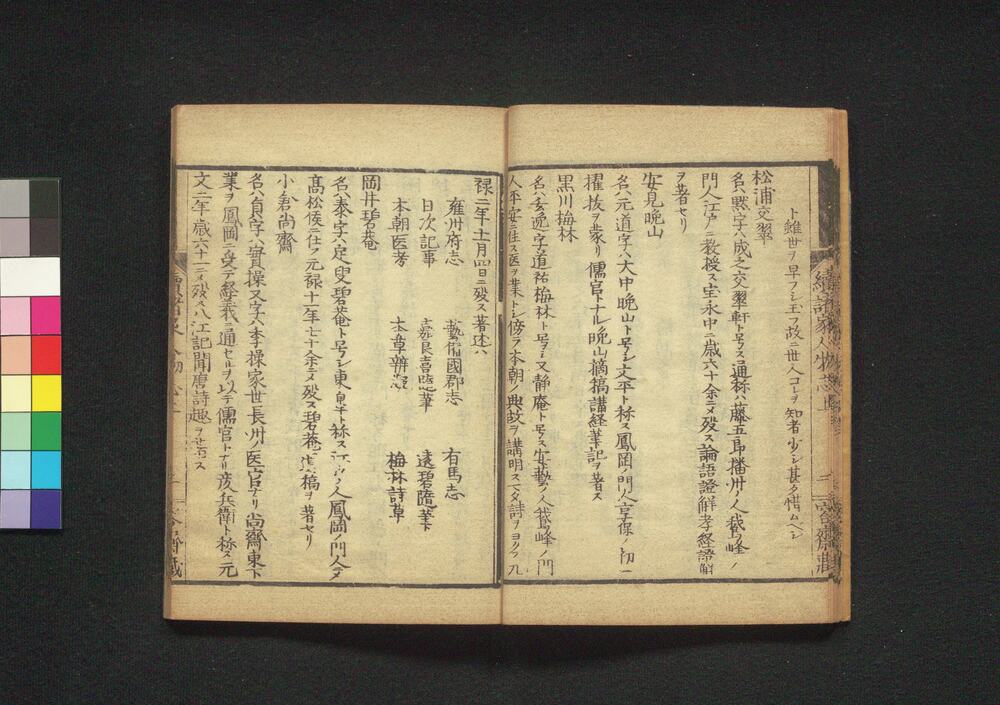 ト雖世ヲ早フシ玉フ故ニ世人コレヲ知者少シ甚タ惜ムヘシ
松浦交翠
名ハ黙字ハ成之交翠軒ト号ス通称ハ藤五郎播州ノ人鵞峰ノ
門人江戸ニ教授ス宝永中ニ歳六十余ニメ殁ス論語證解孝経諺解
ヲ著セリ
安見晩山
名ハ元道字ハ大中晩山ト号シ文平ト称ス鳳岡ノ門人享保ノ初
擢抜ヲ蒙リ儒官トナル晩山摘稿講経筆記ヲ著ス
黒川梅林
名ハ玄逸字ハ道祐梅林ト号シ又静庵ト号ス安藝ノ人鵞峰ノ門
人平安ニ住ス医ヲ業トシ傍ラ本朝ノ典故ヲ講明ス又詩ヲヨクス元
禄二年十一月四日ニ殁ス著述ハ
雍州府志 藝備國郡志 有馬志
日次記事 嘉良喜随筆 遠碧隨筆
本朝医考 本草辨 梅林詩草
岡井碧菴
名ハ泰字ハ定叟碧菴ト号シ東皐ト称ス江戸ノ人鳳岡ノ門人ニメ
髙松侯ニ仕フ元禄十一年七十余ニメ殁ス碧菴遺稿ヲ著セリ
小倉尚齋
名ハ貞字ハ實操又字ハ季操家世長州ノ医官ナリ尚齋東下
業ヲ鳳岡ニ受テ経義ニ通セルヲ以テ儒官トナリ彦兵衛ト称ス元
文二年歳六十一ニメ殁ス八江記聞唐詩趣ヲ世ニ云ス
續諸家人物志上